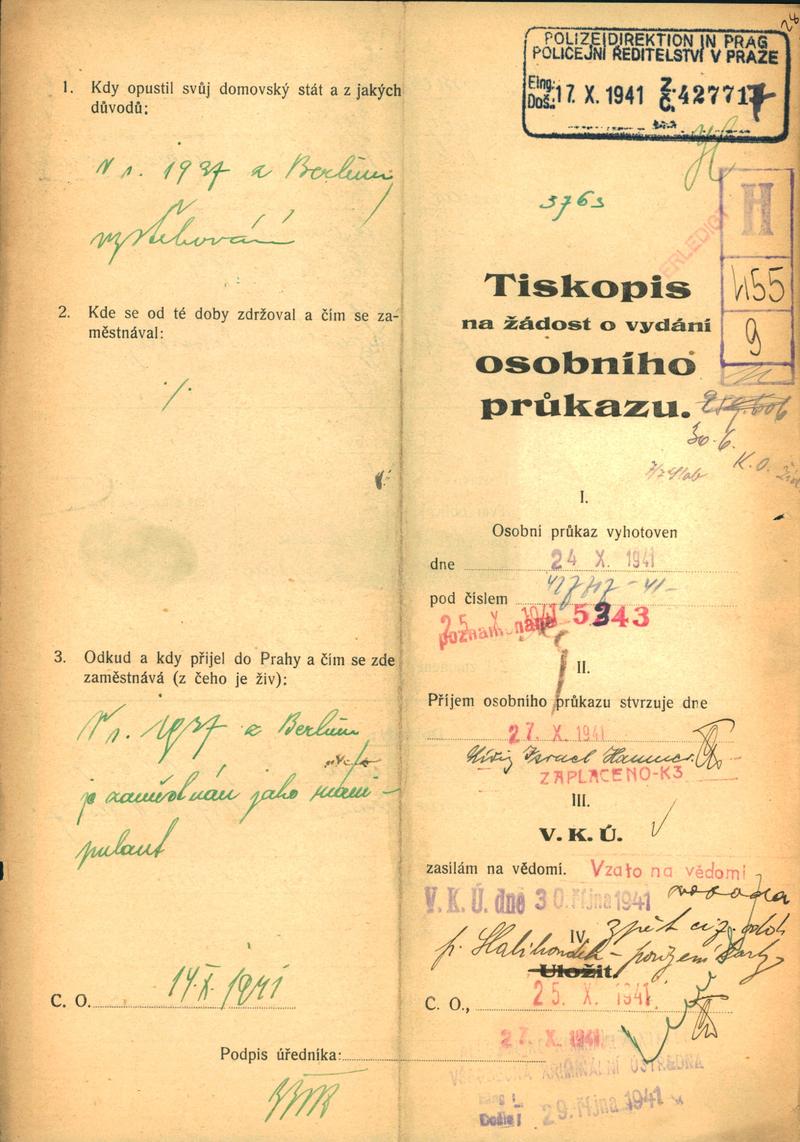 1. Kdy opustil svůj domovský stát a z jakých
důvodů:
V r. 1937 z Berlína,
vystěhování
2. Kde se od té doby zdržoval a čím se za-
městnával:
./.
3. Odkud a kdy přijel do Prahy a čím se zde
zaměstnává (z čeho je živ):
V r. 1937 z Berlína
je zaměstnán jako mani-
pulant
C. O. 14.X.1941
Podpis úředníka:
28
POLIZEIDIREKTION IN PRAG
POLICEJNÍ ŘEDITELSTVÍ V PRAZE
Eing.:
Doš.: 17. X. 1941 Z. Č. 427717
3763
ERLEDIGT
H
455
9
Tiskopis
na žádost o vydání
osobního
průkazu.
30.6.
K. O.
I.
Osobní průkaz vyhotoven
dne 24 X. 1941
pod číslem 42717-41-
25 X 1941 5343
poznamenáno
II.
Příjem osobního průkazu stvrzuje dne
27. X. 1941
Israel Hammer
ZAPLACENO-K3
III.
V. K. Ú.
zasílám na vědomí. Vzato na vědomí
V. K. Ú. dne 30. října 1941
zpět
IV.
p.
Uložit.
C. O., 25. X. 1941.
27. X. 1941
VŠEOBECNÁ KRIMINÁLNÍ ÚSTŘEDNA
Došlo: 29. října 1941